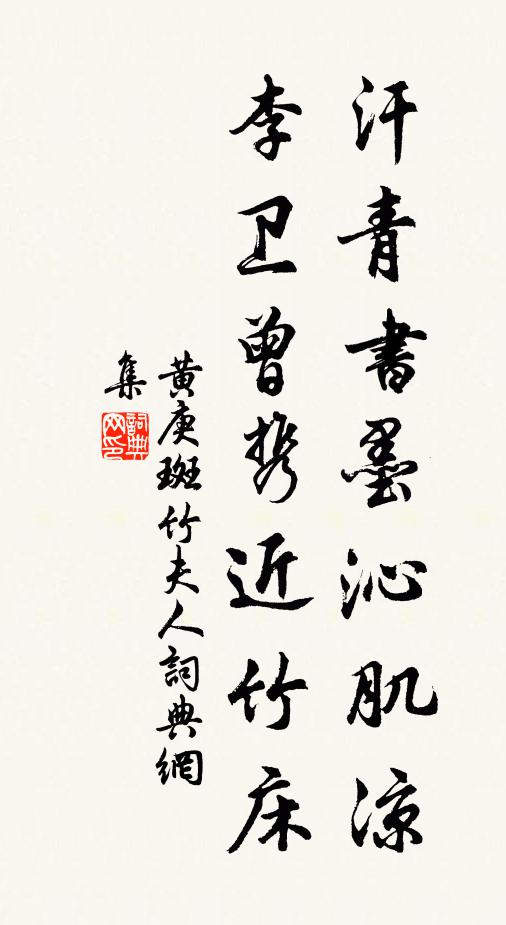 汗青書墨沁肌涼
李卫曾携近竹床
黄庚斑竹夫人詞典網
集
詞典网印